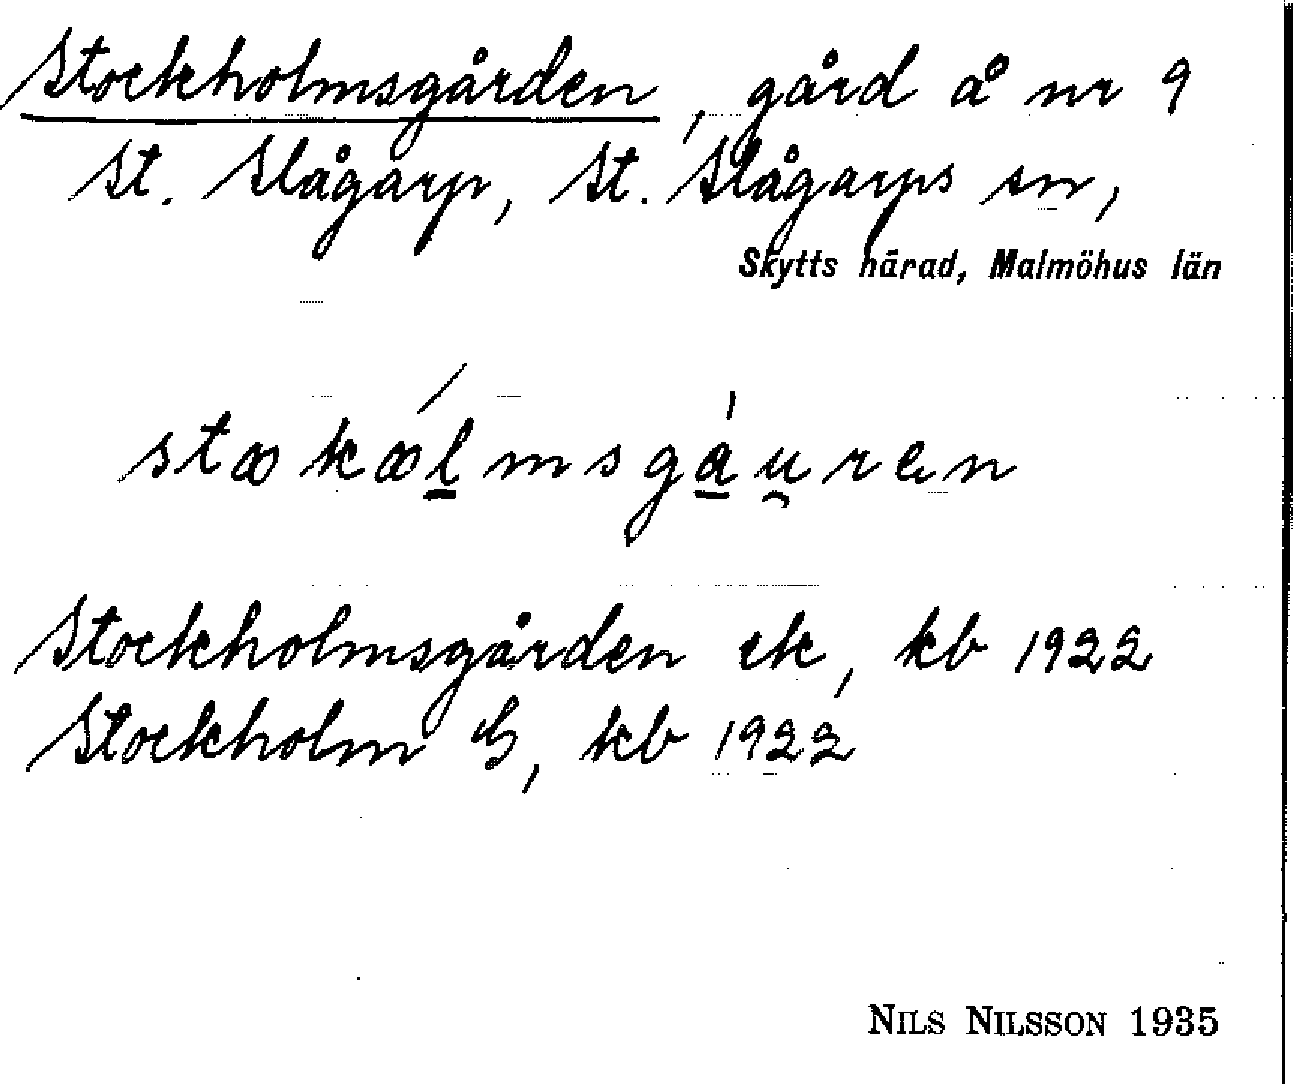 Stockholmsgården, gård å nr 9
St. Slågarp, St. Slågarps sn,
Skytts härad, Malmöhus län
stꝏkꝏ́l̲msgá̲u̯ren
Stockholmsgården ek, kb 1922
Stockholm G, kb 1922
NILS NILSSON 1935